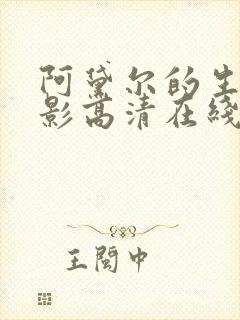 阿黛尔的生
影高清在线
王闅中